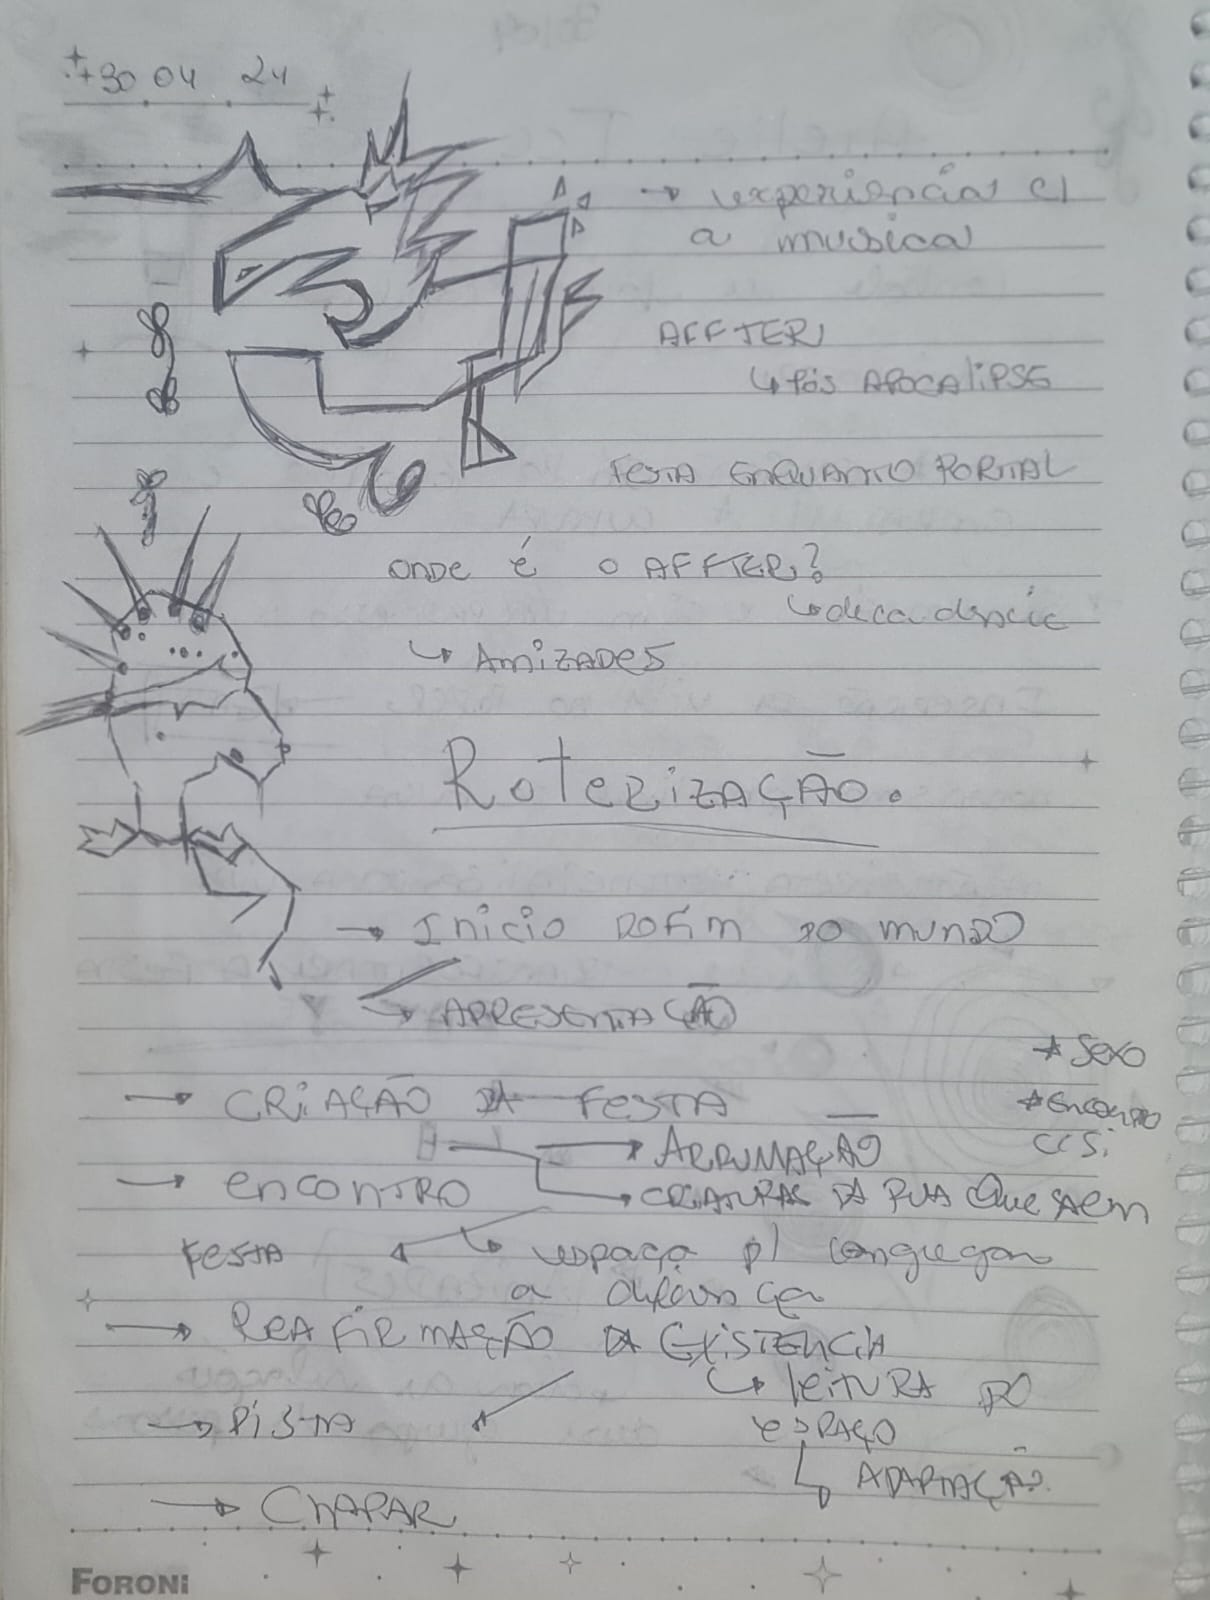 30 04 24
→ experiências c/
a musica
AFFTER
↳ Pós APOCALIPSE
FESTA ENQUANTO PORTAL
ONDE É O AFFTER?
↳ decadência
↳ AmizADES
RoteRizAÇÃO.
→ Inicio DO Fim DO munDO
↳ APRESENTAÇÃO
* Sexo
→ CRIAÇÃO DA FESTA
* Encontro
→ ARRUMAÇÃO
C/ Si
→ encontRO
→ CRIATURAS DA RUA Que SAEM
FESTA
↳ espaço p/ congregar
a diferença
→ REAFIRMAÇÃO DA EXISTENCIA
↳ leiTURA DO
esPAÇO
→ PISTA
↳ ADAPTAÇÃO
→ ChAPAR
FORONI